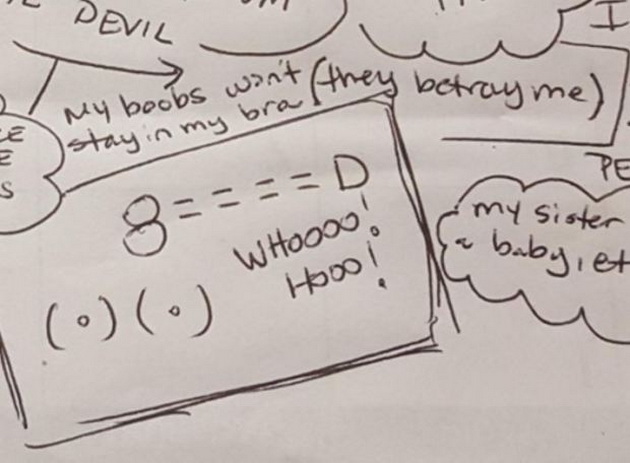 DEVIL
I
My boobs won't (they betray me)
stay in my bra
PE
8====D
WHOOOO!
HOOO!
(o) (o)
my sister
a baby, et